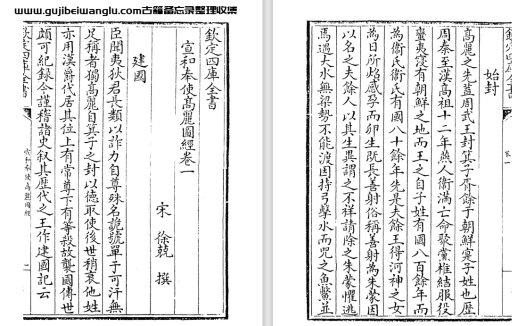 www.gujibeiwanglu.com古籍备忘录整理收集
欽定四庫全書
宣和奉使高麗圖經卷一
宋 徐兢 撰
建國
臣聞夷狄君長類以詐力自尊殊名詭號單于可汗無
足稱者獨高麗自箕子之封以德取侯後世稍衰他姓
亦用漢爵代居其位上有常尊下有等殺故襲國傳世
頗可紀録今謹稽諸史叙其歴代之王作建國記云
始封
高麗之先蓋周武王封箕子胥餘于朝鮮寔子姓也歴
周秦至漢高祖十二年燕人衛滿亡命聚黨椎結服役
蠻夷寖有朝鮮之地而王之自子姓有國八百餘年而
為衛氏衛氏有國八十餘年先是夫餘王得河神之女
為日所炤感孕而卵生既長善射俗稱善射為朱蒙因
以名之夫餘人以其生異謂之不祥請除之朱蒙懼逃
焉遇大水無梁勢不能渡因持弓擊水而咒之魚鼈並